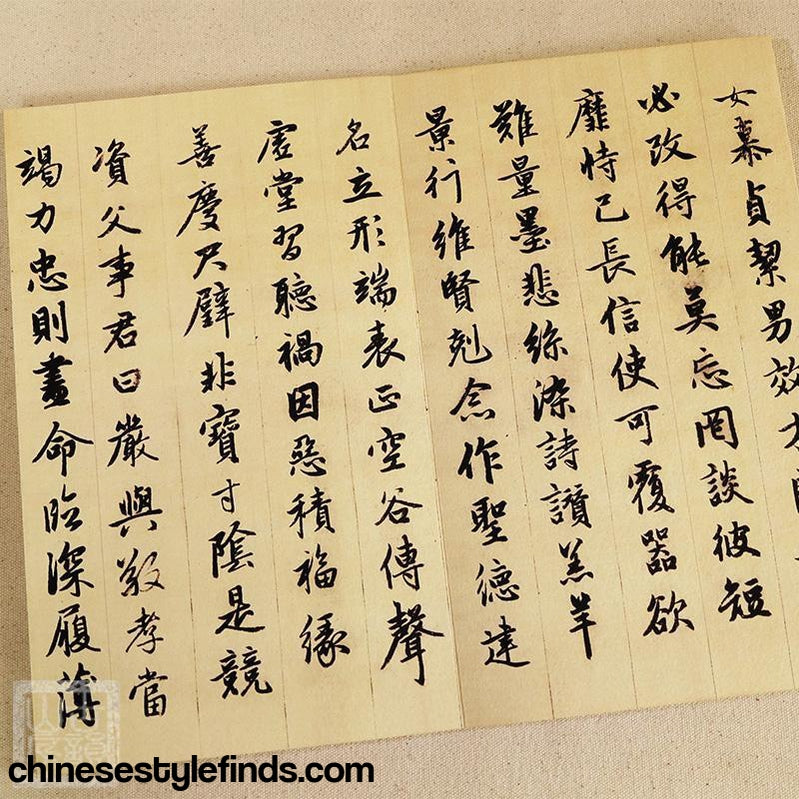 女慕貞絜男效才
必改得能莫忘罔談彼短
靡恃己長信使可覆器欲
難量墨悲絲染詩讃羔羊
景行維賢剋念作聖德建
名立形端表正空谷傳聲
虛堂習聽禍因惡積福緣
善慶尺璧非寶寸陰是競
資父事君曰嚴與敬孝當
竭力忠則盡命臨深履薄
chinesestylefinds.com